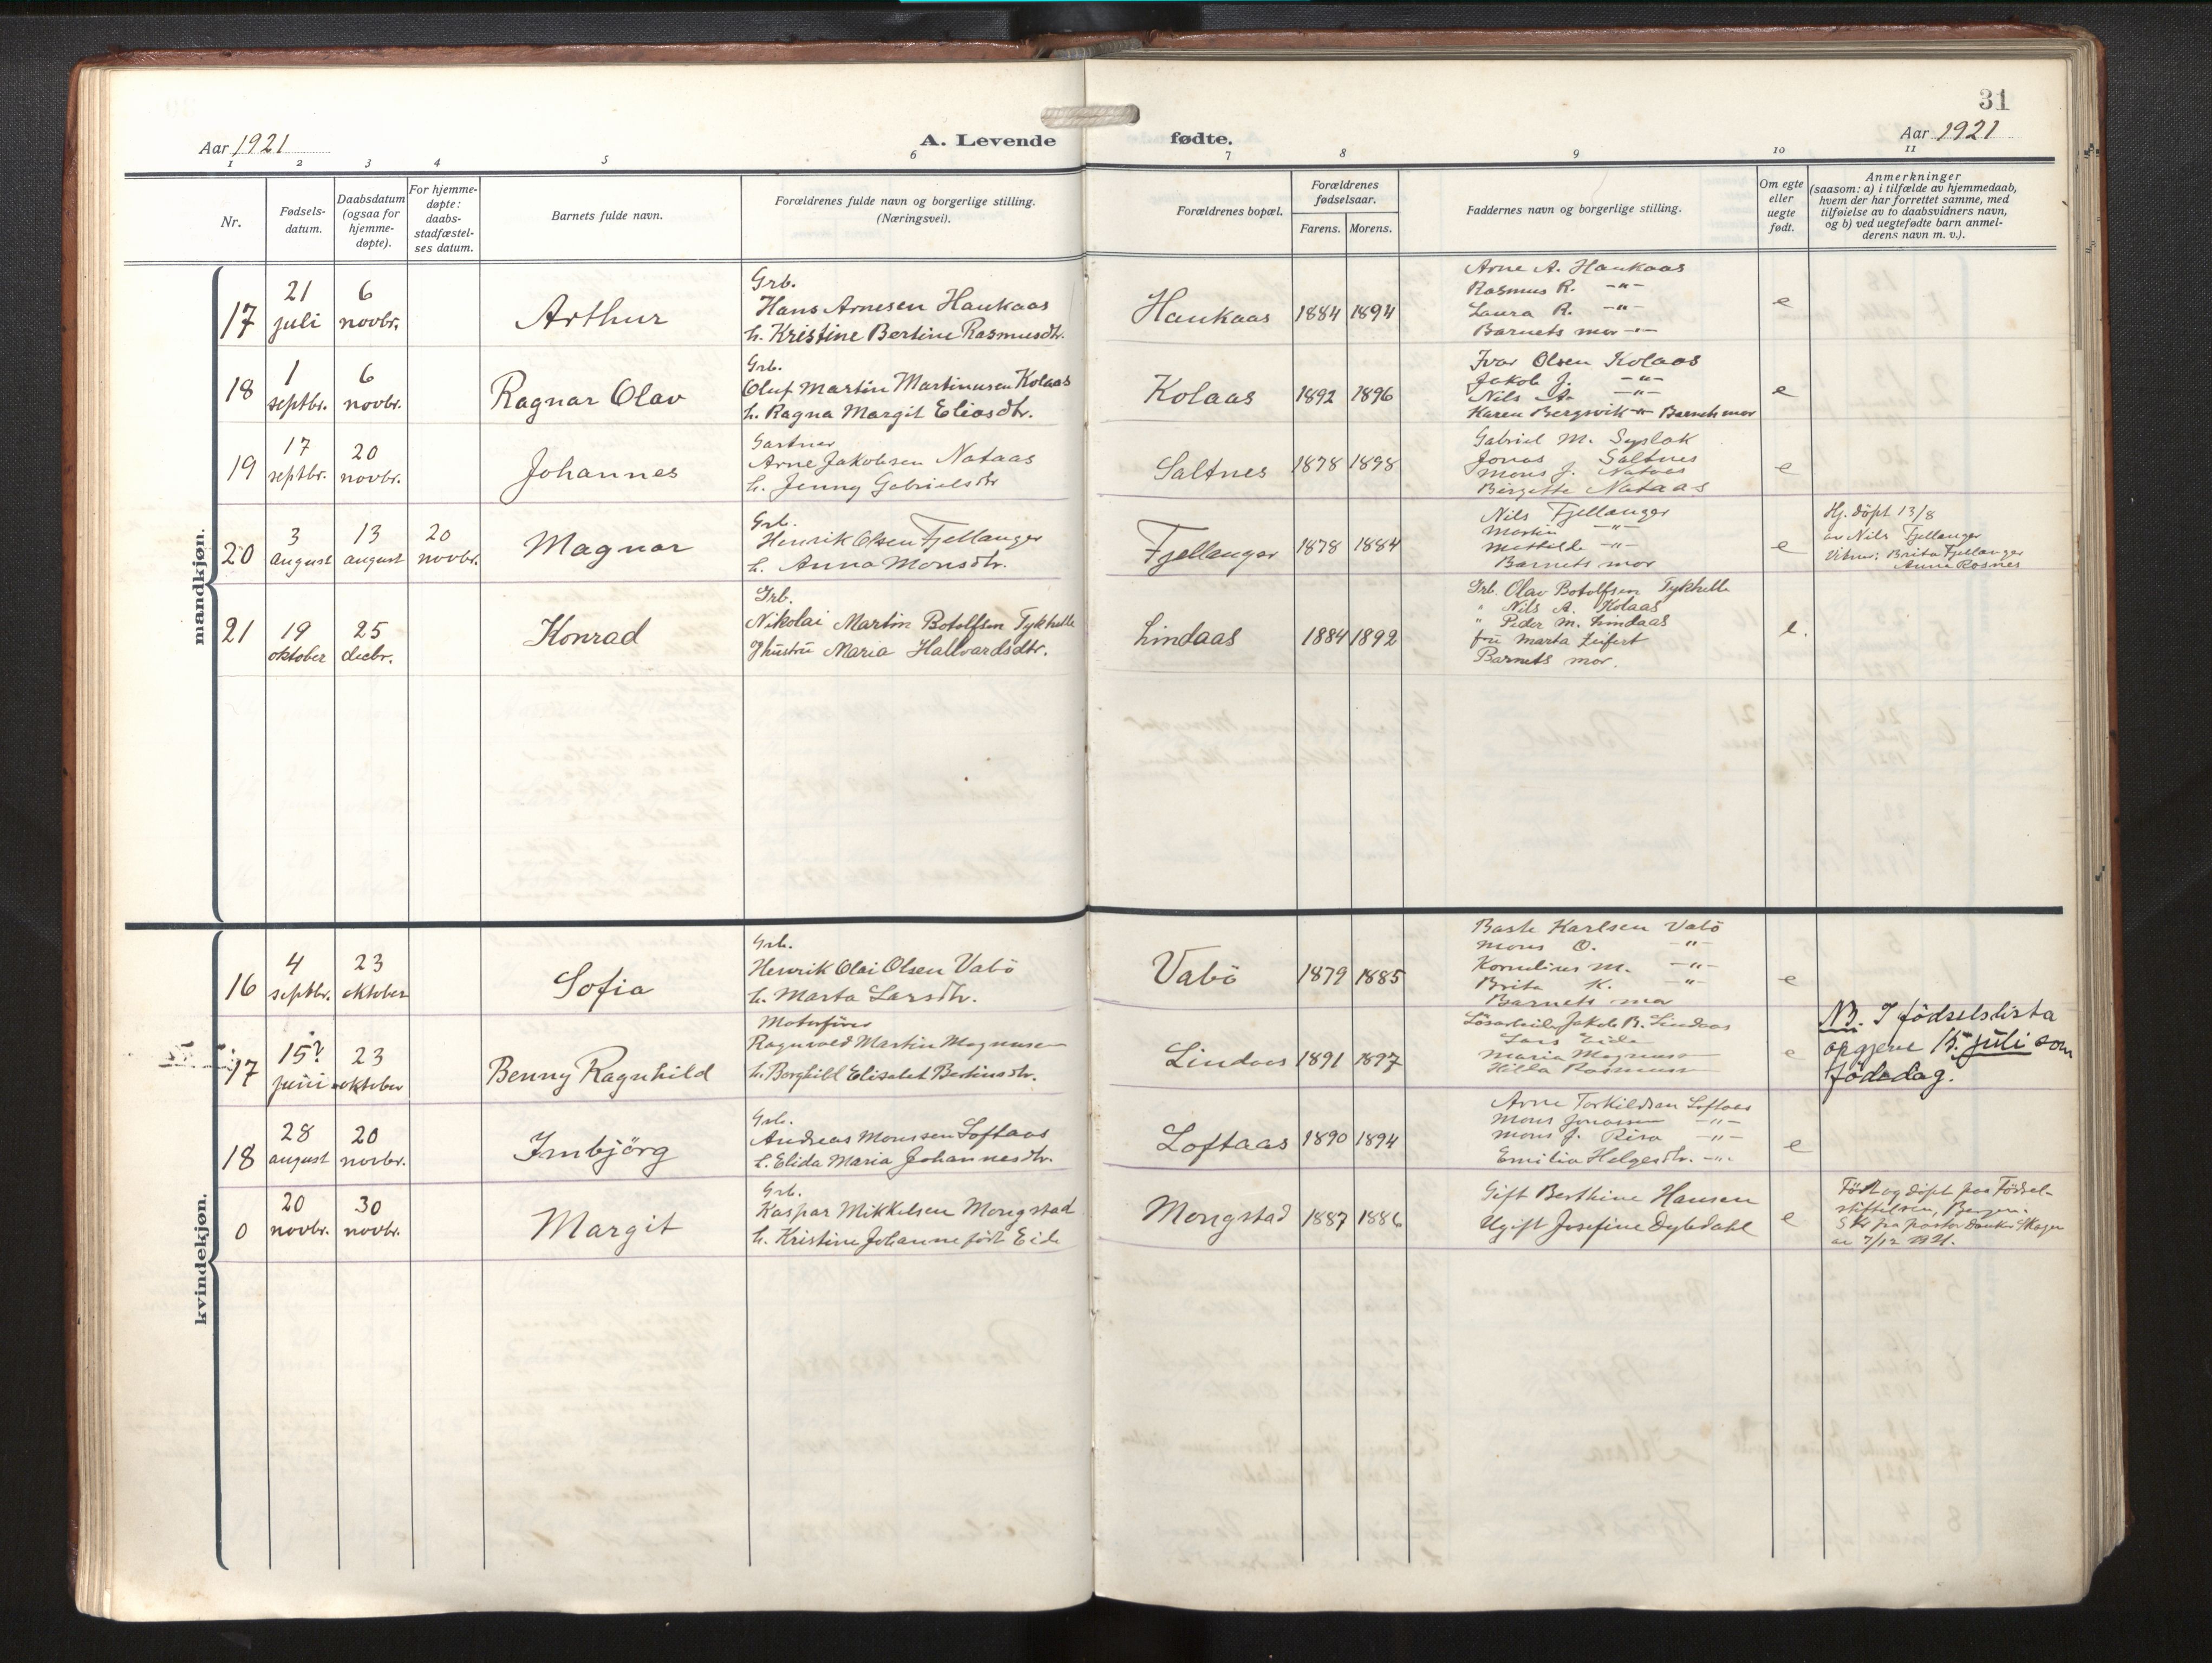 31
Aar 1921
A. Levende
fødte.
Aar 1921
1 2 3 4 5 6 7 8 9 10 11
Nr.
Fødsels-
datum.
Daabsdatum
(ogsaa for
hjemme-
døpte).
For hjemme-
døpte:
daabs-
stadfæstel-
ses datum.
Barnets fulde navn.
Forældrenes fulde navn og borgerlige stilling.
(Næringsvei).
Forældrenes bopæl.
Forældrenes
fødselsaar.
Farens. Morens.
Faddernes navn og borgerlige stilling.
Om egte
eller
uegte
født.
Anmerkninger
(saasom: a) i tilfælde av hjemmedaab,
hvem der har forrettet samme, med
tilføielse av to daabsvidners navn,
og b) ved uegtefødte barn anmel-
derens navn m. v.).
mandkjøn.
17
21
juli
6
novbr.
Arthur
Grb.
Hans Arnesen Haukaas
h. Kristine Bertine Rasmusdtr.
Haukaas
1884 1894
Arne A. Haukaas
Rasmus R. -"-
Laura R. -"-
Barnets mor -"-
e
18
1
septbr.
6
novbr.
Ragnar Olav
Grb.
Oluf Martin Martinusen Kolaas
h. Ragna Margit Eliasdtr.
Kolaas
1892 1896
Ivar Olsen Kolaas
Jakob J. -"-
Nils A. -"-
Karen Bergsvik -"- Barnets mor
e
19
17
septbr.
20
novbr.
Johannes
Gartner
Arne Jakobsen Nataas
h. Jenny Gabrielsdtr
Saltnes
1878 1898
Gabriel M. Syslak
Jonas Saltnes
Mons J. Nataas
Birgitte Nataas
e
20
3
august
13
august
20
novbr.
Magnar
Grb.
Henrik Olsen Fjellanger
h. Anna Monsdtr.
Fjellanger
1878 1884
Nils Fjellanger
Martin -"-
Mathilde -"-
Barnets mor
e
Hj. döpt 13/8
av Nils Fjellanger
Vitner: Brita Fjellanger
Anna Rosnes
21
19
oktober
25
decbr.
Konrad
Grb.
Nikolai Martin Botolfsen Tykhelle
Hustru Maria Hallvardsdtr.
Lindaas
1884 1892
Grb. Olav Botolfsen Tykhelle
" Nils A. Kolaas
" Peder M. Lindaas
fru Marta Zeifert
Barnets mor.
e.
kvindekjøn.
16
4
septbr.
23
oktober
Sofia
Grb.
Henrik Olai Olsen Vabö
h. Marta Larsdtr.
Vabö
1879 1885
Baste Karlsen Vabö
Mons O. -"-
Kornelius M. -"-
Brita K. -"-
Barnets mor
e
17
15?
juni
23
oktober
Benny Ragnhild
Motorfører
Ragnvald Martin Magnusen
h. Borghild Elisabet Bertinsdtr.
Lindaas
1891 1897
Jakob R. Lindaas
Lars Eide
Maria Magnusen
Hilda Rasmussen
e
NB. I födselslista
opgjeve 15. juli som
födedag.
18
28
august
20
novbr.
Imbjörg
Grb.
Andreas Monssen Loftaas
h. Elida Maria Johannesdtr.
Loftaas
1890 1894
Arne Torkildsen Loftaas
Mons Jonassen -"-
Mons J. Risa -"-
Emilia Helgesdtr. -"-
e
0
20
novbr.
30
novbr.
Margit
Grb.
Kaspar Mikkelsen Mongstad
h. Kristine Johanne född Eide
Mongstad
1887 1886
Gift Berthine Hansen
Ugift Josefine Dybdahl
e
Född og döpt paa Födsel-
stiftelsen, Bergen.
av 7/12 1921.